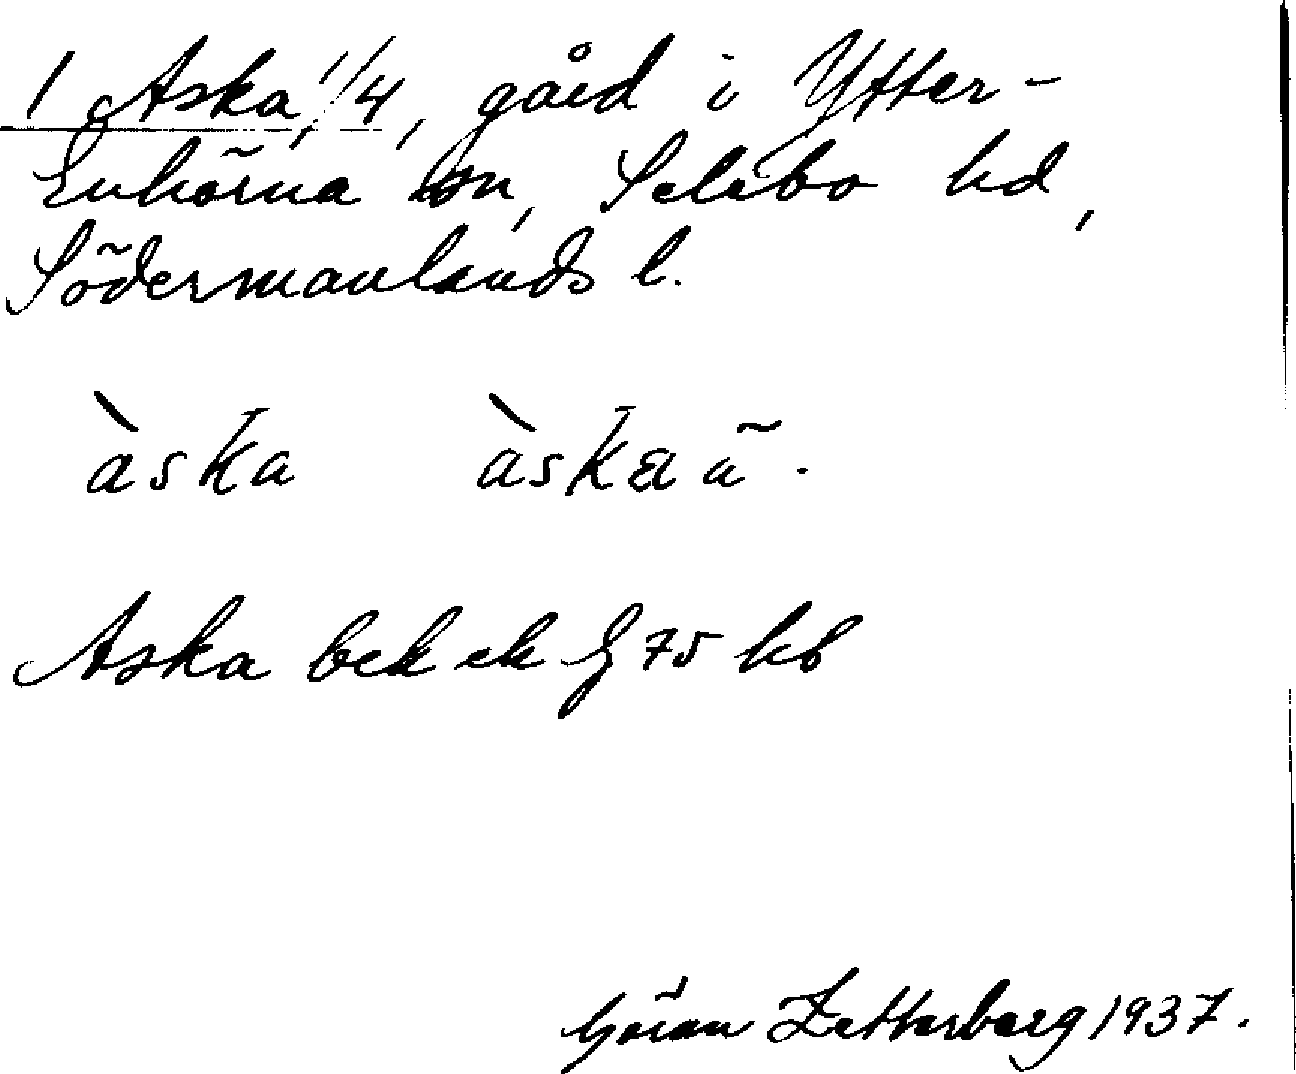 1 Aska, 1/4, gård i Ytter-
Enhörna sn, Selebo hd,
Södermanlands l.
àska àska
Aska bek ek G 75 hb
Göran Zetterberg 1937.